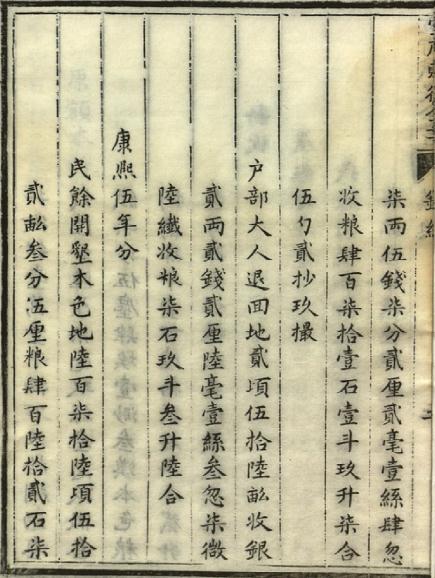 柒兩伍錢柒分貳厘貳毫壹絲肆忽
收粮肆百柒拾壹石壹斗玖升柒合
伍勺貳抄玖撮
户部大人退回地貳頃伍拾陸畝收銀
貳兩貳錢貳厘陸毫壹絲叁忽柒微
陸纖收粮柒石玖斗叁升陸合
康熈伍年分
民餘開墾本色地陸百柒拾陸頃伍拾
貳畝叁分伍厘粮肆百陸拾貳石柒